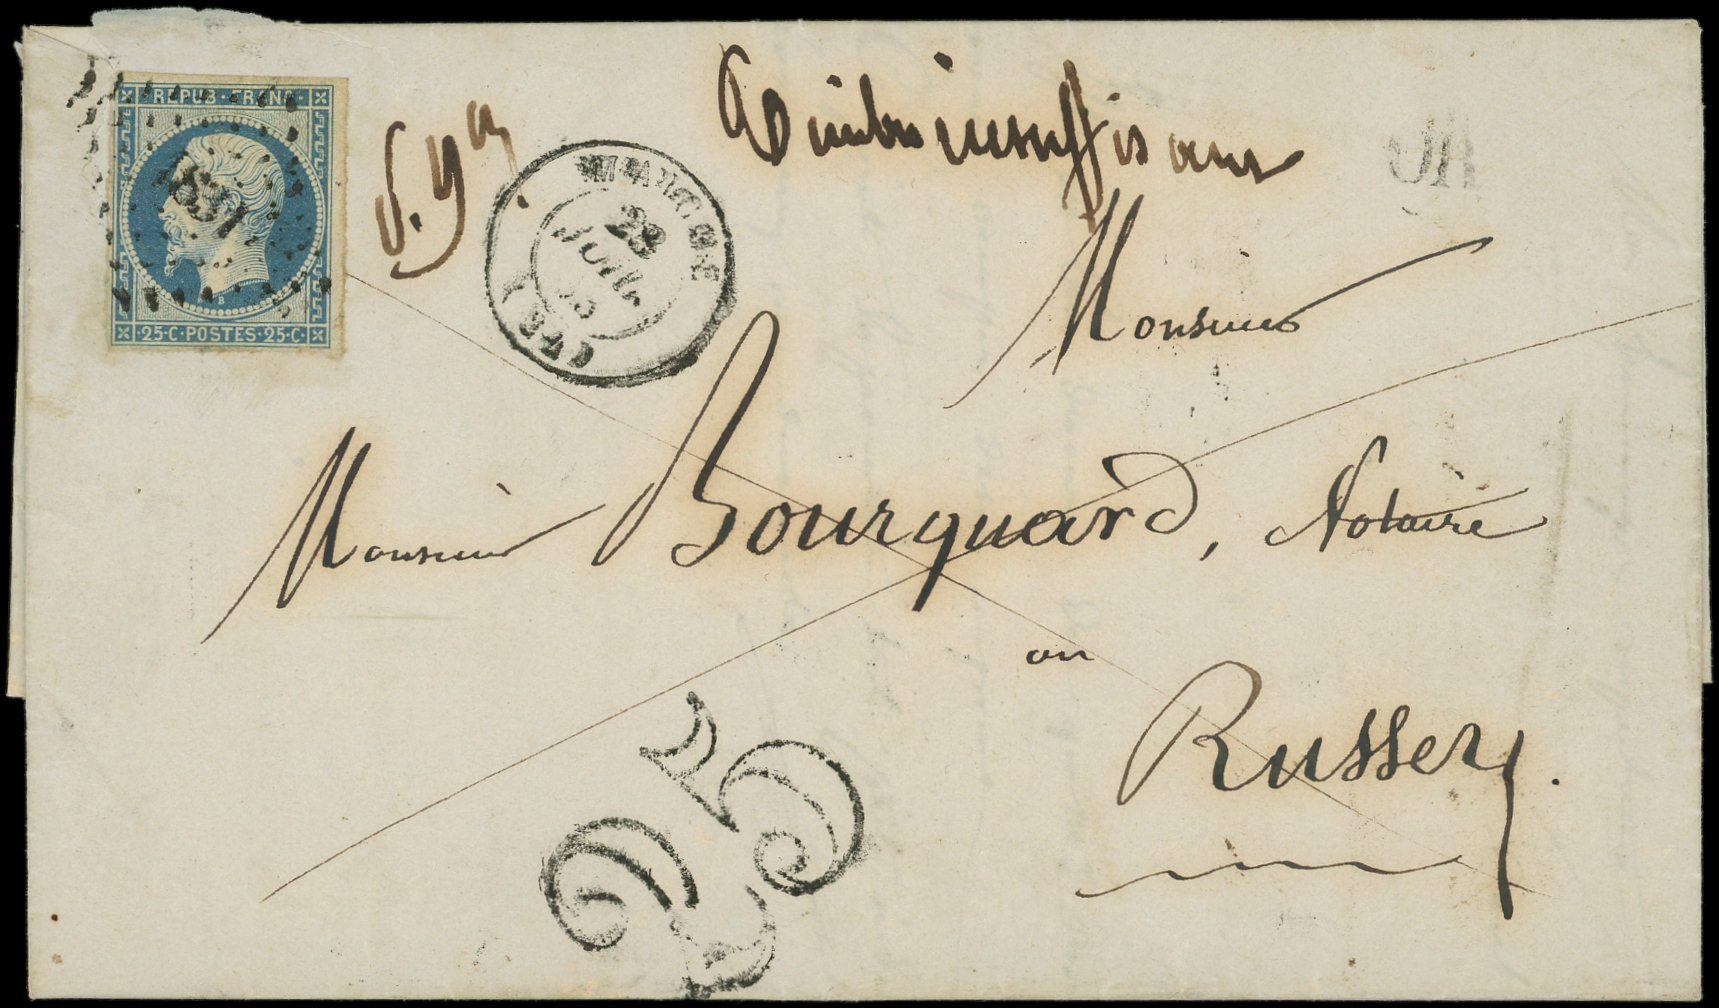 REPUB·FRANC·
25·C·POSTES·25·C·
Timbre insuffisant
23
JUIL
Monsieur
Monsieur Bourquard, Notaire
au
Russey.
25